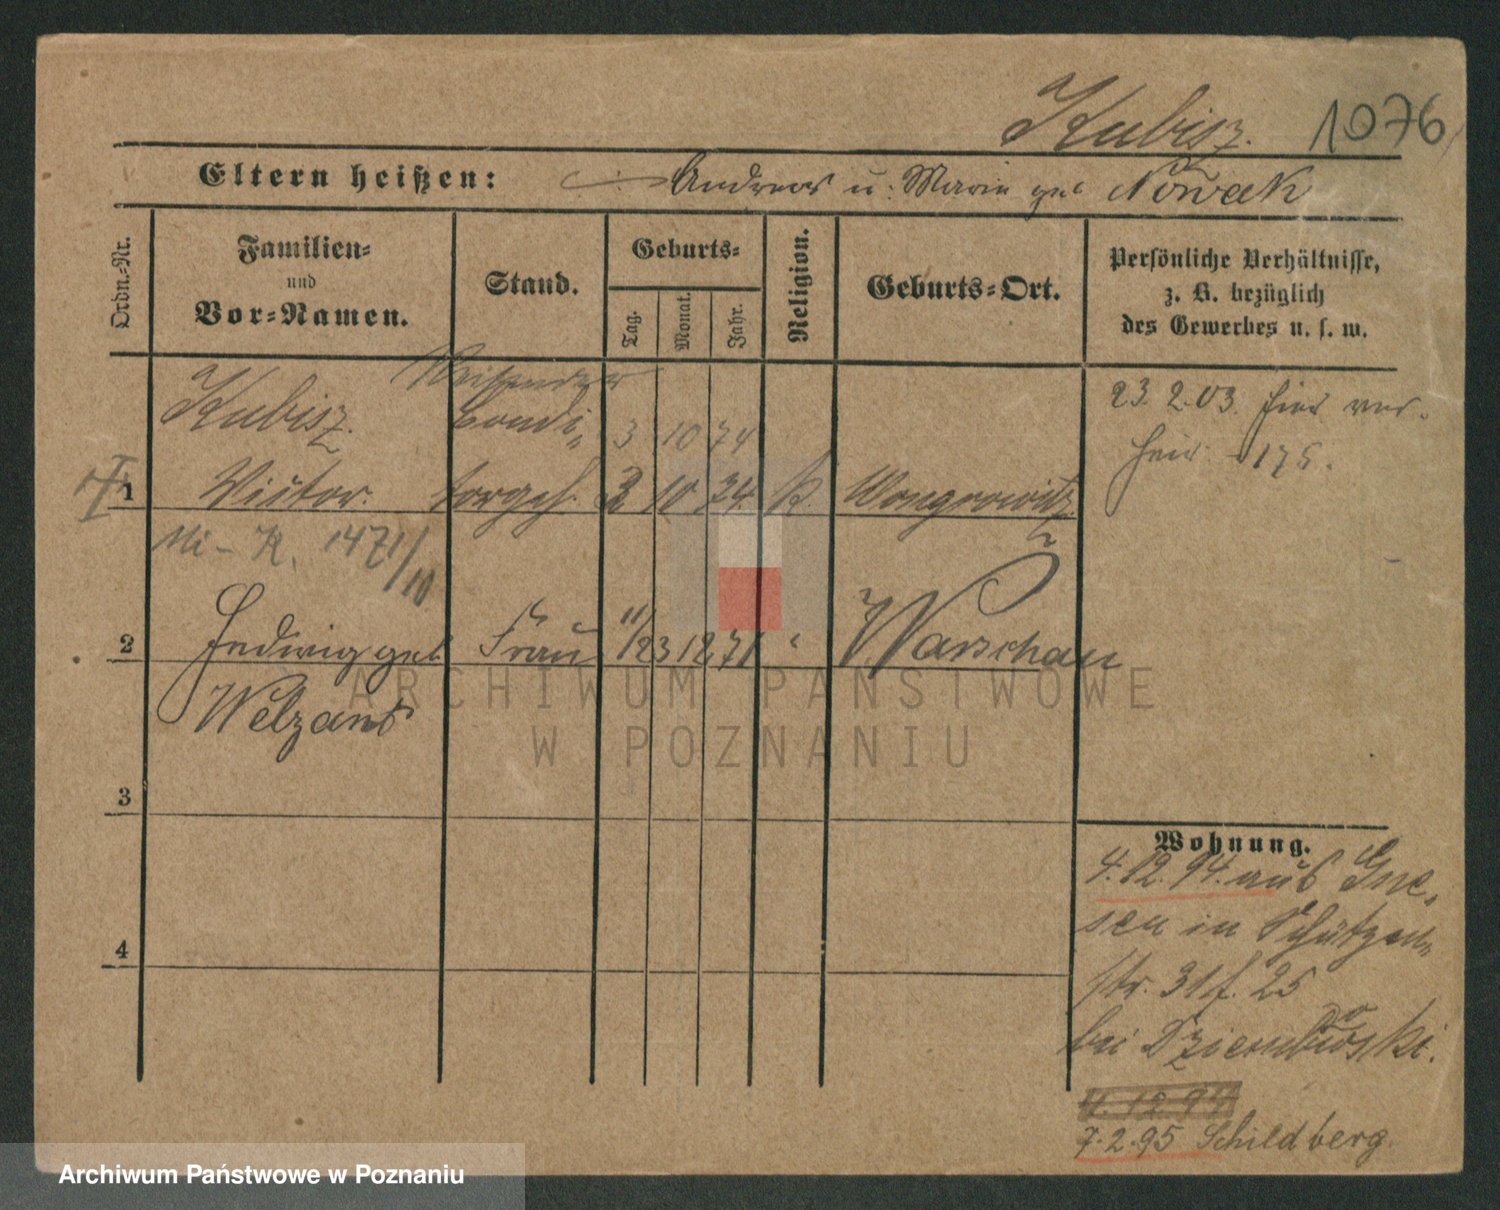 Kubisz. 1076
Eltern heißen: Andreas u. Marie geb Nowak
Ordn.-Nr.
Familien-
und
Vor-Namen.
Stand.
Geburts-
Tag.
Monat.
Jahr.
Religion.
Geburts-Ort.
Persönliche Verhältnisse,
z. B. bezüglich
des Gewerbes u. s. w.
Reisender
Kubisz. Condi- 3 10 74
1 Victor. torgeh. 3 10 74. k. Wongrowitz
23. 2. 03. hier ver-
heir. 175.
Mi-K. 1471/10
2 Hedwig geb Frau 11/23 12 71 " Warschau
Welzant
3
4
Wohnung.
4. 12. 94. aus Gne-
sen in Schützen-
str. 31 f. 25
bei Dziembowski.
4. 12 94
7. 2. 95 Schildberg.
ARCHIWUM PAŃSTWOWE
W POZNANIU
Archiwum Państwowe w Poznaniu